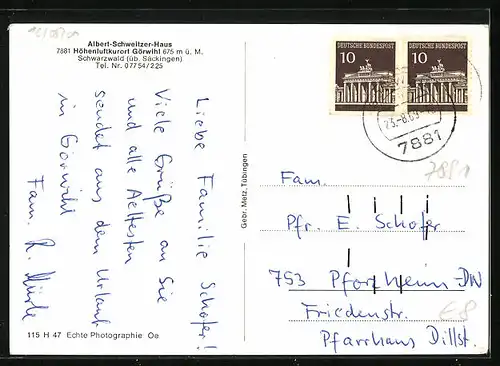 Albert-Schweitzer-Haus
7881 Höhenluftkurort Görwihl 675 m ü. M.
Schwarzwald (üb. Säckingen)
Tel. Nr. 07754/225
Liebe Familie Schofer!
Viele Grüße an Sie
und alle Aeltesten
sendet aus dem Urlaub
in Görwihl
Fam. R.
115 H 47 Echte Photographie Oe
Gebr. Metz, Tübingen
DEUTSCHE BUNDESPOST
10
DEUTSCHE BUNDESPOST
10
7881
7881
Fam.
Pfr. E. Schofer
753 Pforzheim-DW
Friedenstr.
Pfarrhaus Dillst.